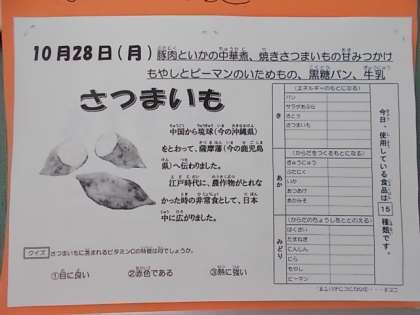 10月28日(月) 豚肉といかの中華煮、焼きさつまいもの甘みつかけ
もやしとピーマンのいためもの、黒糖パン、牛乳
さつまいも
中国から琉球(今の沖縄県)
をとおって、薩摩藩(今の鹿児島
県)へ伝わりました。
江戸時代に、農作物がとれな
かった時の非常食として、日本
中に広がりました。
クイズ さつまいもに含まれるビタミンCの特徴は何でしょうか。
①目に良い ②赤色である ③熱に強い
今日、使用している食品は15種類です。
き
(エネルギーのもとになる)
パン
サラダあぶら
さとう
さつまいも
あか
(からだをつくるもとになる)
ぎゅうにゅう
ぶたにく
いか
あつあげ
あかみそ
みどり
(からだのちょうしをととのえる)
はくさい
たまねぎ
にんじん
にら
もやし
ピーマン